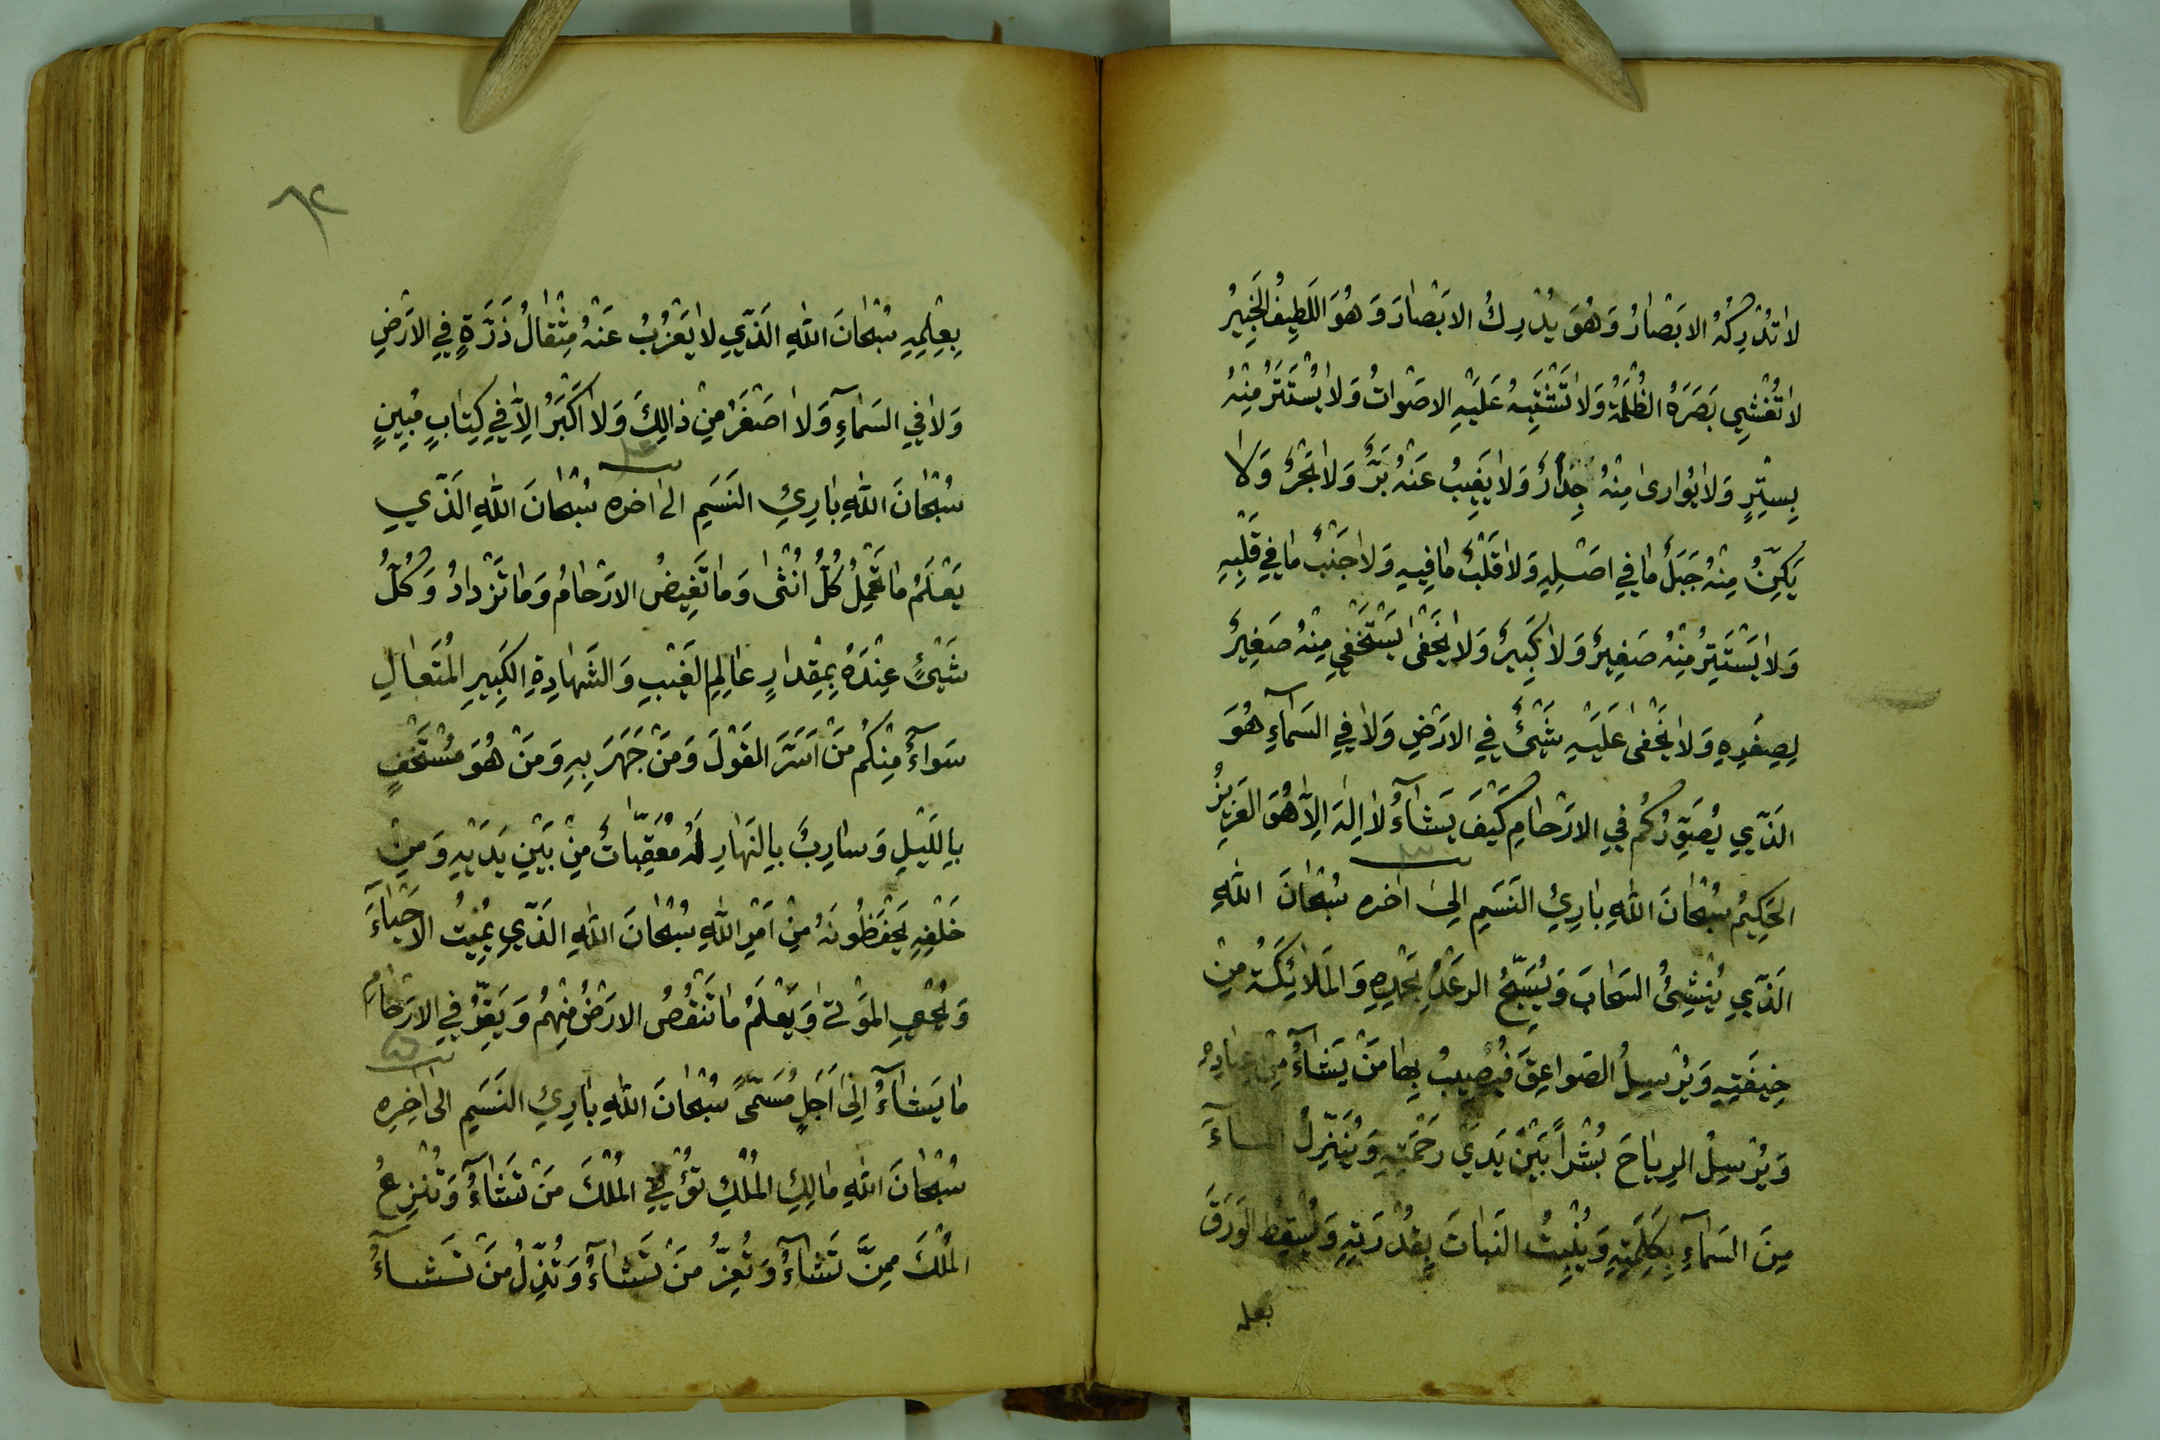 لا تُدْرِكُهُ الابَصْارُ وَهُوَ يُدْرِكُ الابَصْارَ وَهُوَ اللَطِيفُ الخَبِيرُ
لا تُغشِي بَصَرَهُ الظُلمَةُ وَلا تَشْتَبِهُ عَلَيْهِ الاصَواتُ وَلا يُسْتَتَرُ مِنْهُ
بِسِتْرٍ وَلا يُوارى مِنْهُ جِدارٌ وَلا يَغِيبُ عَنْهُ بَرٌّ وَلا بَحْرٌ وَلا
يَكِنُّ مِنْهُ جَبَلٌ ما فِي اصَلِهِ وَلا قَلْبٌ ما فِيهِ وَلا جَنْبٌ ما فِي قَلْبِهِ
وَلا يَسْتَتِرُ مِنْهُ صَغِيرٌ وَلا كَبِيرٌ وَلا يَخْفى يَسْتَخْفِي مِنْهُ صَغِيرٌ
لِصِغَرِهِ وَلا يَخْفى عَلَيْهِ شَيْئٌ فِي الارَضِ وَلا فِي السَماءِ هُوَ
الَذّي يُصَوِّرُكُمْ فِي الارَحامِ كَيْفَ يَشاءُ لا اِلهَ اِلاّ هُوَ العَزِيزُ
٣
الحَكِيمُ سُبْحانَ اللهِ بارِئِ النَسَمِ اِلى اخره سُبْحانَ اللهِ
الَذّي يُنْشِئُ السَحابَ وَيُسَبِّحُ الرَعْدُ بِحَمْدِهِ وَالمَلائِكَةُ مِنْ
خِيفَتِهِ وَيُرْسِلُ الصَواعِقَ فَيُصِيبُ بِها مَنْ يَشاءُ مِنْ عِبادِهِ
وَيُرْسِلُ الرِياحَ بُشْراً بَيْنَ يَدَي رَحْمَتِهِ وَيُنَزِّلُ الماءَ
مِنَ السَماءِ بِكَلِمَتِهِ وَيُنْبِتُ النَباتَ بِقُدْرَتِهِ وَيُسْقِطُ الوَرَقَ
بعلمه
٦٢
بِعِلمِهِ سُبْحانَ اللهِ الَذّي لا يَعْزُبُ عَنْهُ مِثْقالُ ذَرَّةٍ فِي الارَضِ
وَلا فِي السَماءِ وَلا اصَغَرُ مِنْ ذلِكَ وَلا اكَبَرُ اِلاّ فِي كِتابٍ مُبِينٍ
٤
سُبْحانَ اللهِ بارِئِ النَسَمِ الى اخره سُبْحانَ اللهِ الَذّي
يَعْلَمُ ما تَحْمِلُ كُلُّ اُنْثى وَما تَغِيضُ الارَحامُ وَما تَزْدادُ وَكُلُّ
شَيْئٍ عِنْدَهُ بِمِقْدارٍ عالِمِ الغَيْبِ وَالشَهادِةِ الكَبِيرِ المُتَعالِ
سَواءٌ مِنْكُمْ مَنْ اَسَرَّ القَوْلَ وَمَنْ جَهَرَ بِهِ وَمَنْ هُوَ مُسْتَخْفٍ
بِاللَيْلِ وَسارِبٌ بِالنَهارِ لَهُ مُعَقِّباتٌ مِنْ بَيْنِ يَدَيْهِ وَمِنْ
خَلْفِهِ يَحْفَظُونَهُ مِنْ اَمْرِ اللهِ سُبْحانَ اللهِ الَذّي يُمِيتُ الاحَياءَ
وَيُحْيِي المَوْتى وَيَعْلَمُ ما تَنْقُصُ الارَضُ مِنْهُمْ وَيَقِرُّ فِي الارَحامِ
٥
ما يَشاءُ اِلى اَجَلٍ مُسَمّىً سُبْحانَ اللهِ بارِئِ النَسَمِ الى اخِرِه
سُبْحانَ اللهِ مالِكِ المُلْكِ تُؤْتِي المُلْكَ مَنْ تَشاءُ وَتَنْزِعُ
المُلْكَ مِمَّنْ تَشاءُ وَتُعِزُّ مَنْ تَشاءُ وَتُذِلُّ مَنْ تَشاءُ